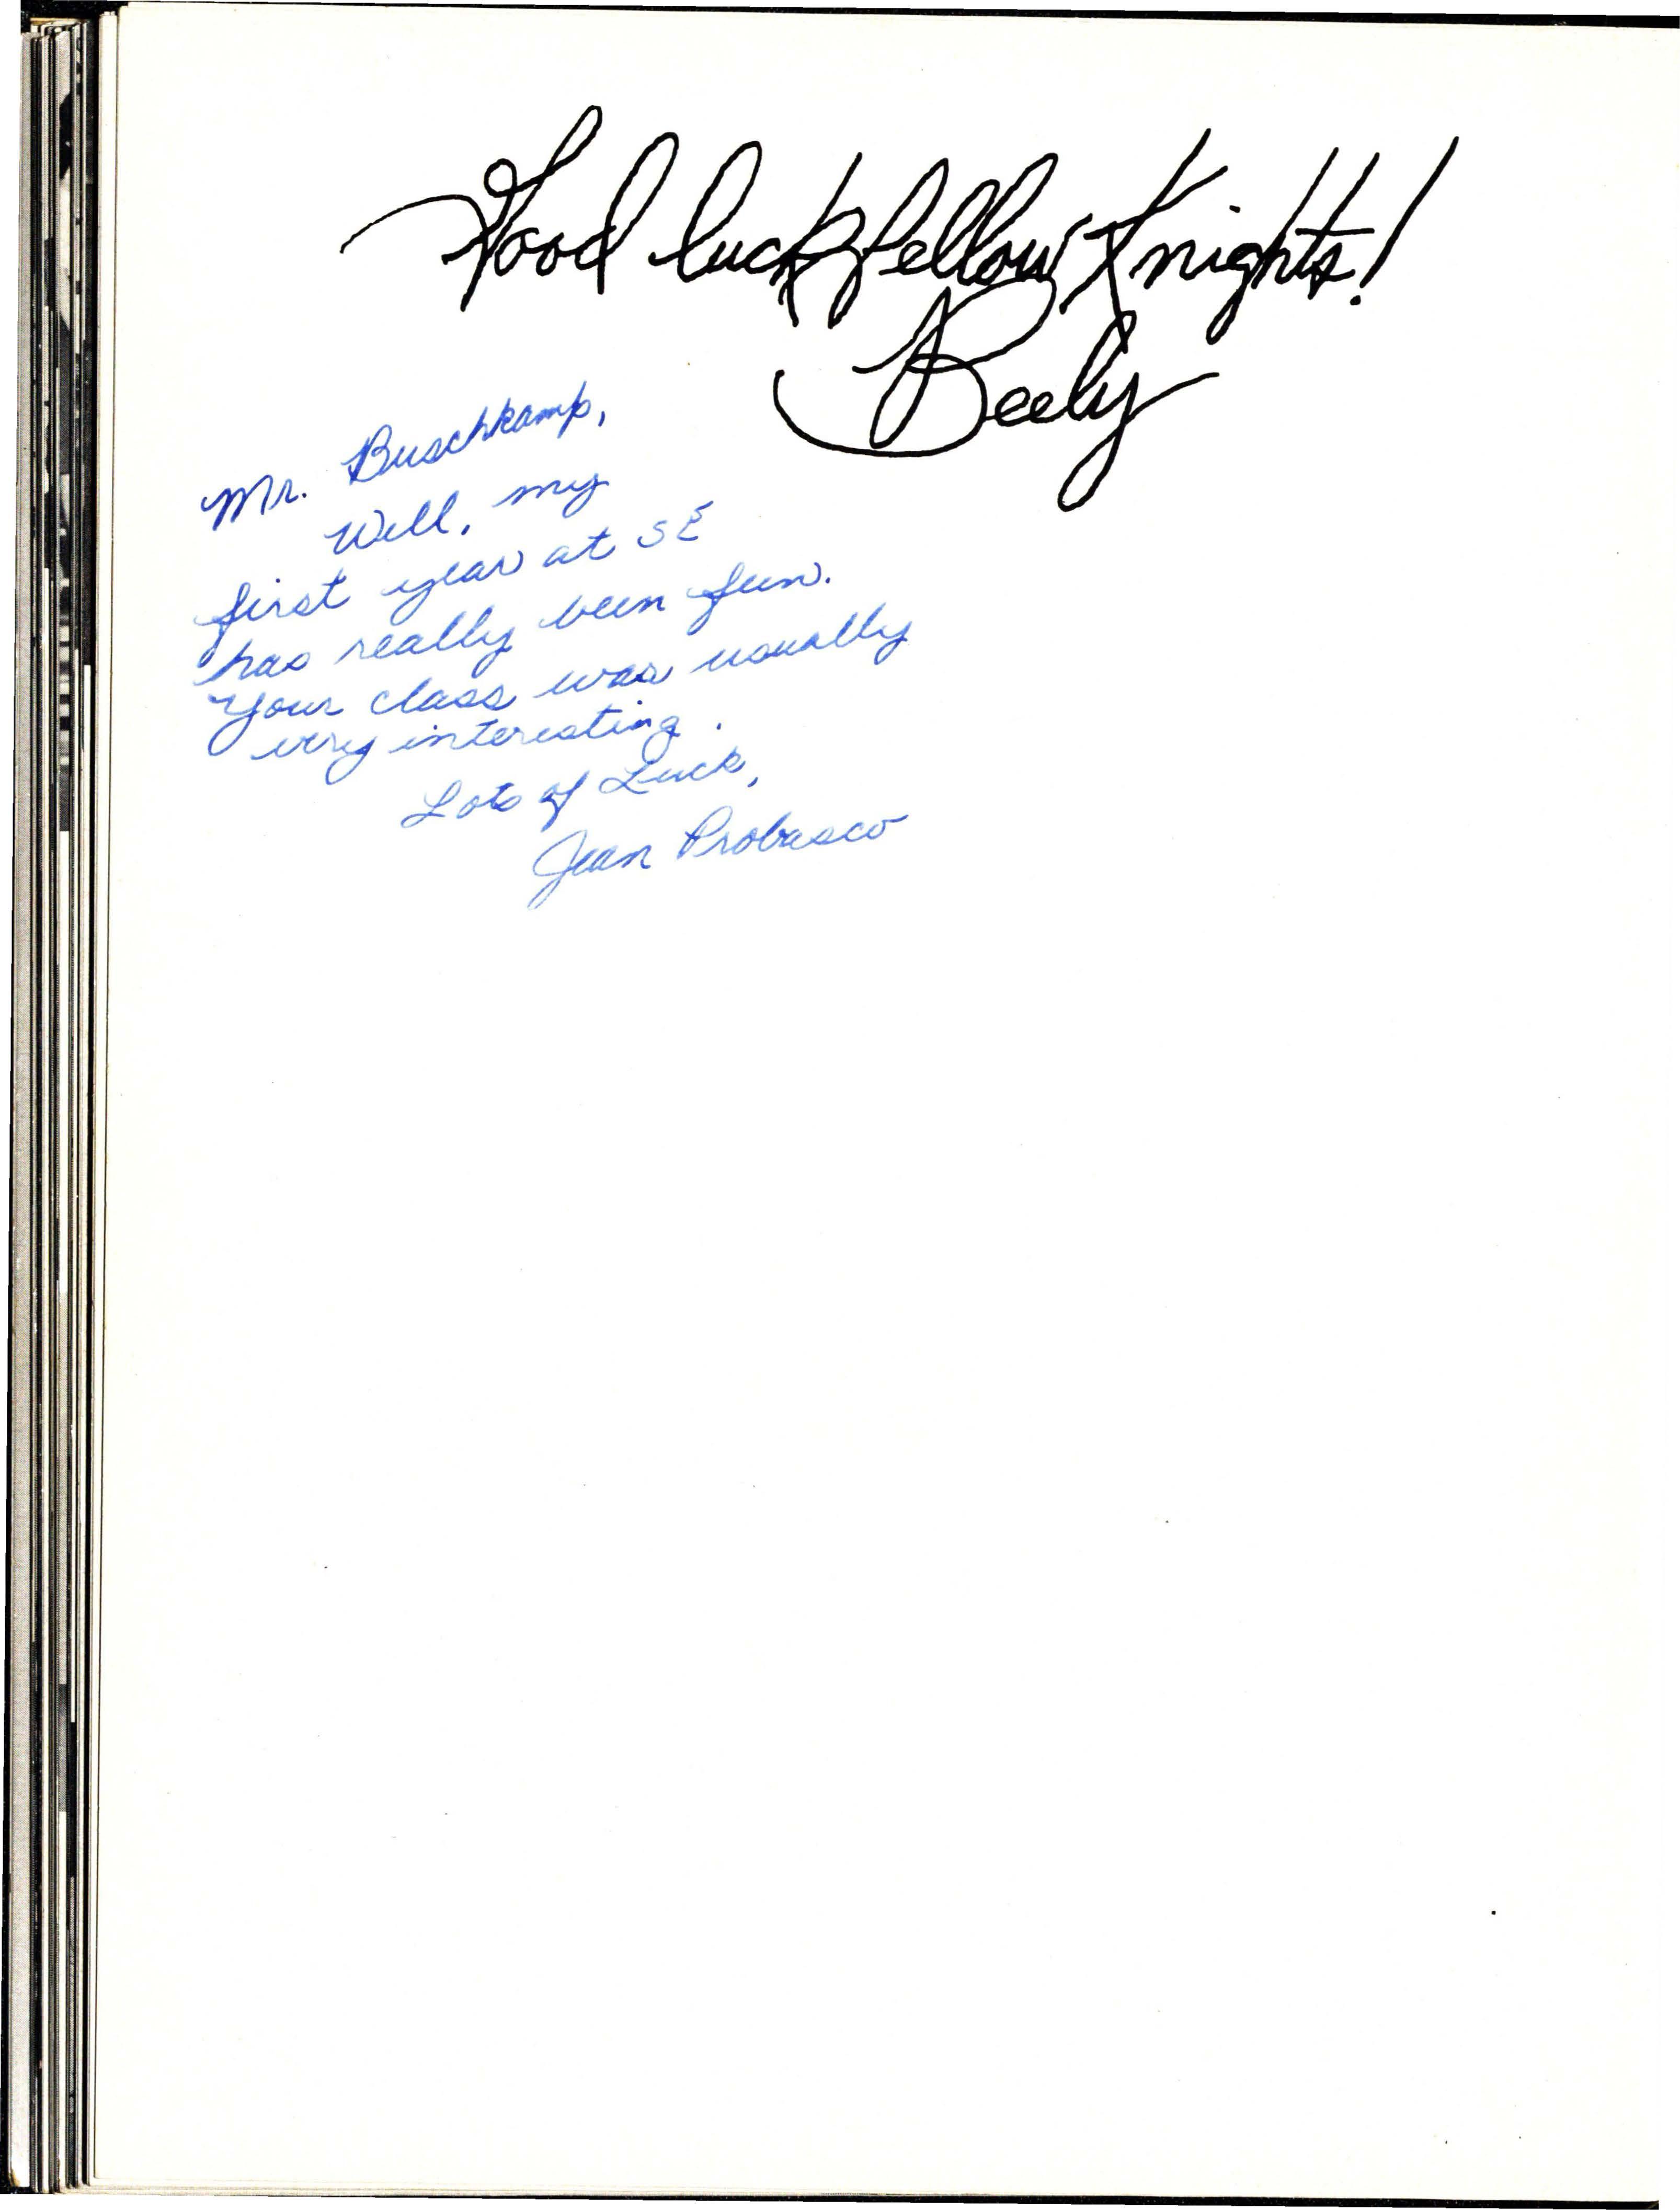 Good luck fellow Knights!
Beely
Mr. Buschkamp,
Well, my
first year at SE
has really been fun.
Your class was usually
very interesting.
Lots of Luck,
Jean Probasco